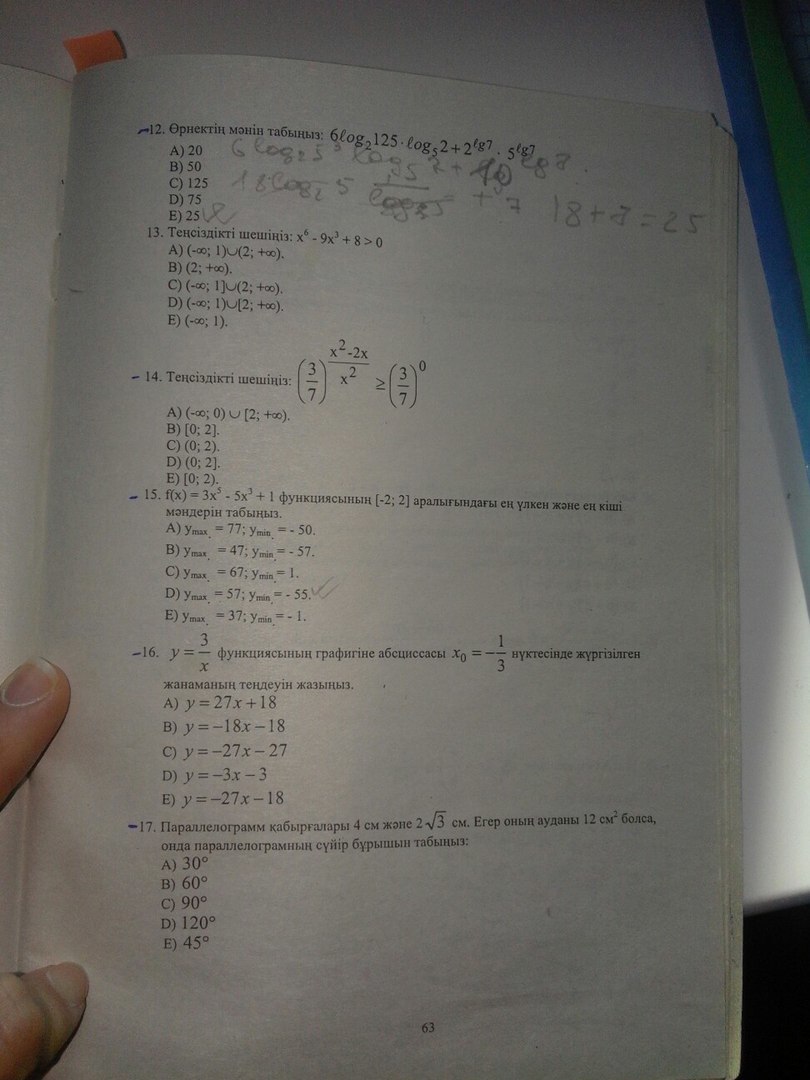 12. Өрнектің мәнін табыңыз: 6ℓog₂125·ℓog₅2+2^ℓg7 · 5^ℓg7
A) 20
B) 50
C) 125
D) 75
E) 25
18+7=25
13. Теңсіздікті шешіңіз: x⁶ - 9x³ + 8 > 0
A) (-∞; 1)∪(2; +∞).
B) (2; +∞).
C) (-∞; 1]∪(2; +∞).
D) (-∞; 1)∪[2; +∞).
E) (-∞; 1).
14. Теңсіздікті шешіңіз: (3/7)^((x²-2x)/x²) ≥ (3/7)⁰
A) (-∞; 0) ∪ [2; +∞).
B) [0; 2].
C) (0; 2).
D) (0; 2].
E) [0; 2).
15. f(x) = 3x⁵ - 5x³ + 1 функциясының [-2; 2] аралығындағы ең үлкен және ең кіші
мәндерін табыңыз.
A) y max. = 77; y min. = - 50.
B) y max. = 47; y min. = - 57.
C) y max. = 67; y min. = 1.
D) y max. = 57; y min. = - 55.
E) y max. = 37; y min. = - 1.
16. y = 3/x функциясының графигіне абсциссасы x₀ = -1/3 нүктесінде жүргізілген
жанаманың теңдеуін жазыңыз.
A) y = 27x + 18
B) y = -18x - 18
C) y = -27x - 27
D) y = -3x - 3
E) y = -27x - 18
17. Параллелограмм қабырғалары 4 см және 2√3 см. Егер оның ауданы 12 см² болса,
онда параллелограмның сүйір бұрышын табыңыз:
A) 30°
B) 60°
C) 90°
D) 120°
E) 45°
63